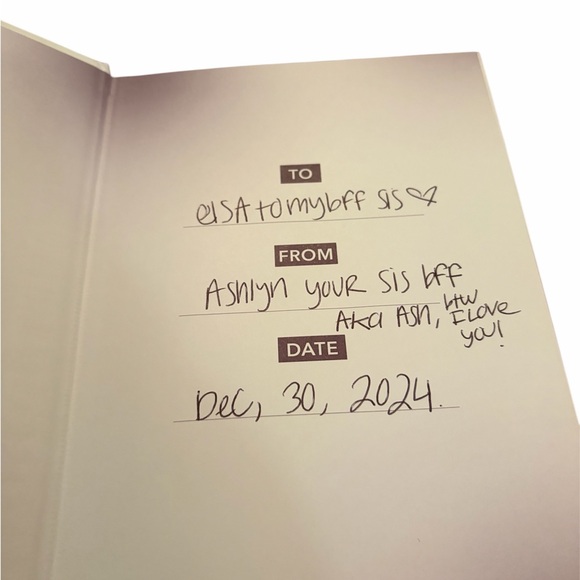 TO
elSA to my bff sis♡
FROM
Ashlyn your sis bff
Aka Ash, btw I Love you!
DATE
Dec, 30, 2024.